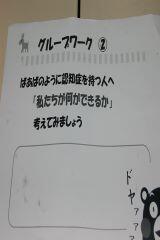 グループワーク ②
ばあばのように認知症を持つ人へ
「私たちが何ができるか」
考えてみましょう
ドヤァァァ